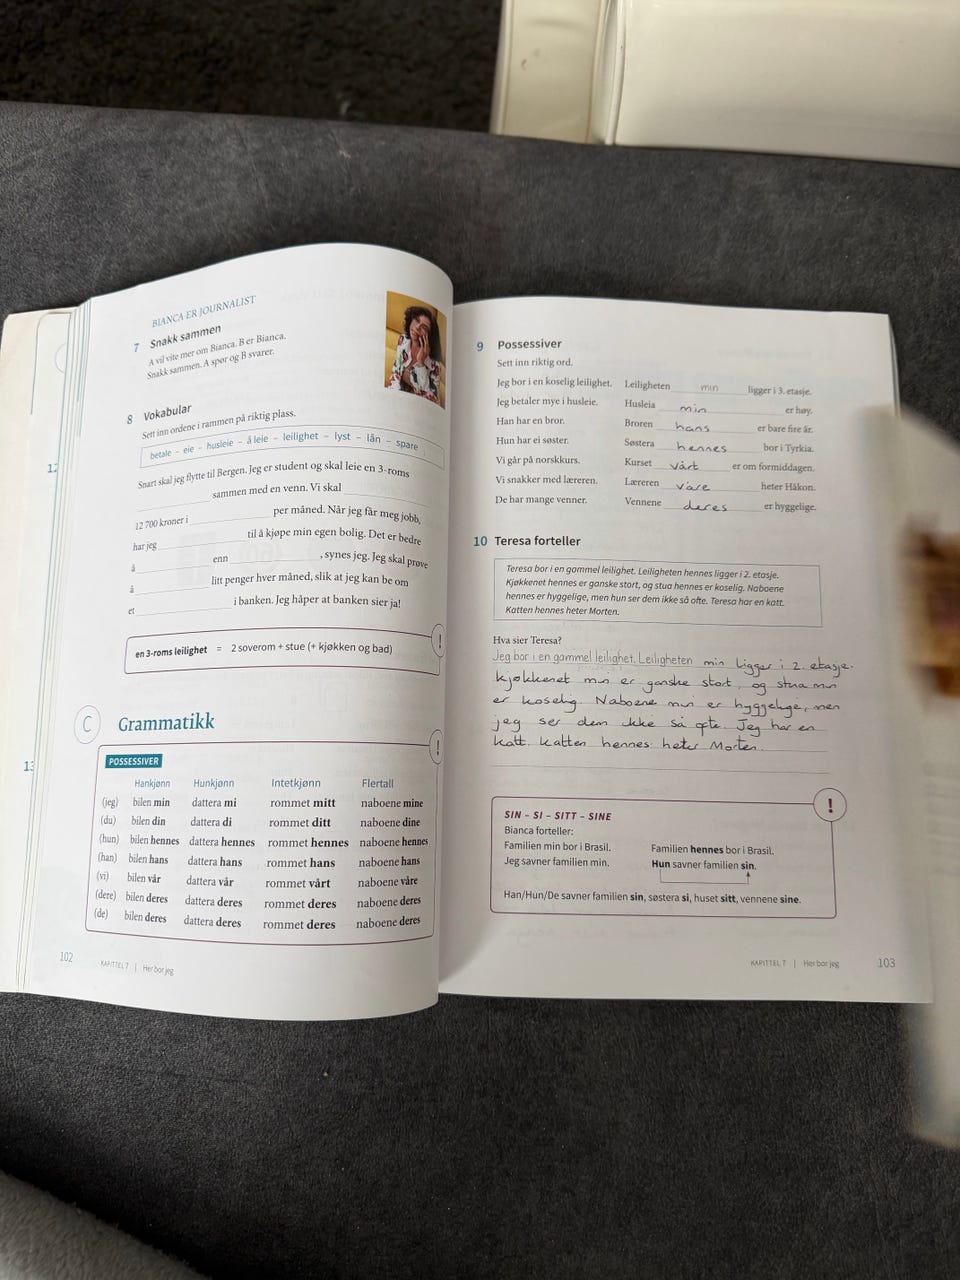 BIANCA ER JOURNALIST
7 Snakk sammen
A vil vite mer om Bianca. B er Bianca.
Snakk sammen. A spør og B svarer.
8 Vokabular
Sett inn ordene i rammen på riktig plass.
betale – eie – husleie – å leie – leilighet – lyst – lån – spare
Snart skal jeg flytte til Bergen. Jeg er student og skal leie en 3-roms
sammen med en venn. Vi skal
12 700 kroner i per måned. Når jeg får meg jobb,
har jeg til å kjøpe min egen bolig. Det er bedre
å enn , synes jeg. Jeg skal prøve
å litt penger hver måned, slik at jeg kan be om
et i banken. Jeg håper at banken sier ja!
!
en 3-roms leilighet = 2 soverom + stue (+ kjøkken og bad)
C Grammatikk
!
POSSESSIVER
Hankjønn Hunkjønn Intetkjønn Flertall
(jeg) bilen min dattera mi rommet mitt naboene mine
(du) bilen din dattera di rommet ditt naboene dine
(hun) bilen hennes dattera hennes rommet hennes naboene hennes
(han) bilen hans dattera hans rommet hans naboene hans
(vi) bilen vår dattera vår rommet vårt naboene våre
(dere) bilen deres dattera deres rommet deres naboene deres
(de) bilen deres dattera deres rommet deres naboene deres
102 KAPITTEL 7 | Her bor jeg
12
13
9 Possessiver
Sett inn riktig ord.
Jeg bor i en koselig leilighet. Leiligheten min ligger i 3. etasje.
Jeg betaler mye i husleie. Husleia min er høy.
Han har en bror. Broren hans er bare fire år.
Hun har ei søster. Søstera hennes bor i Tyrkia.
Vi går på norskkurs. Kurset vårt er om formiddagen.
Vi snakker med læreren. Læreren våre heter Håkon.
De har mange venner. Vennene deres er hyggelige.
10 Teresa forteller
Teresa bor i en gammel leilighet. Leiligheten hennes ligger i 2. etasje.
Kjøkkenet hennes er ganske stort, og stua hennes er koselig. Naboene
hennes er hyggelige, men hun ser dem ikke så ofte. Teresa har en katt.
Katten hennes heter Morten.
Hva sier Teresa?
Jeg bor i en gammel leilighet. Leiligheten min ligger i 2. etasje.
Kjøkkenet min er ganske stort, og stua min
er koselig. Naboene min er hyggelige, men
jeg ser dem ikke så ofte. Jeg har en
katt. Katten hennes heter Morten.
!
SIN – SI – SITT – SINE
Bianca forteller:
Familien min bor i Brasil. Familien hennes bor i Brasil.
Jeg savner familien min. Hun savner familien sin.
Han/Hun/De savner familien sin, søstera si, huset sitt, vennene sine.
KAPITTEL 7 | Her bor jeg 103